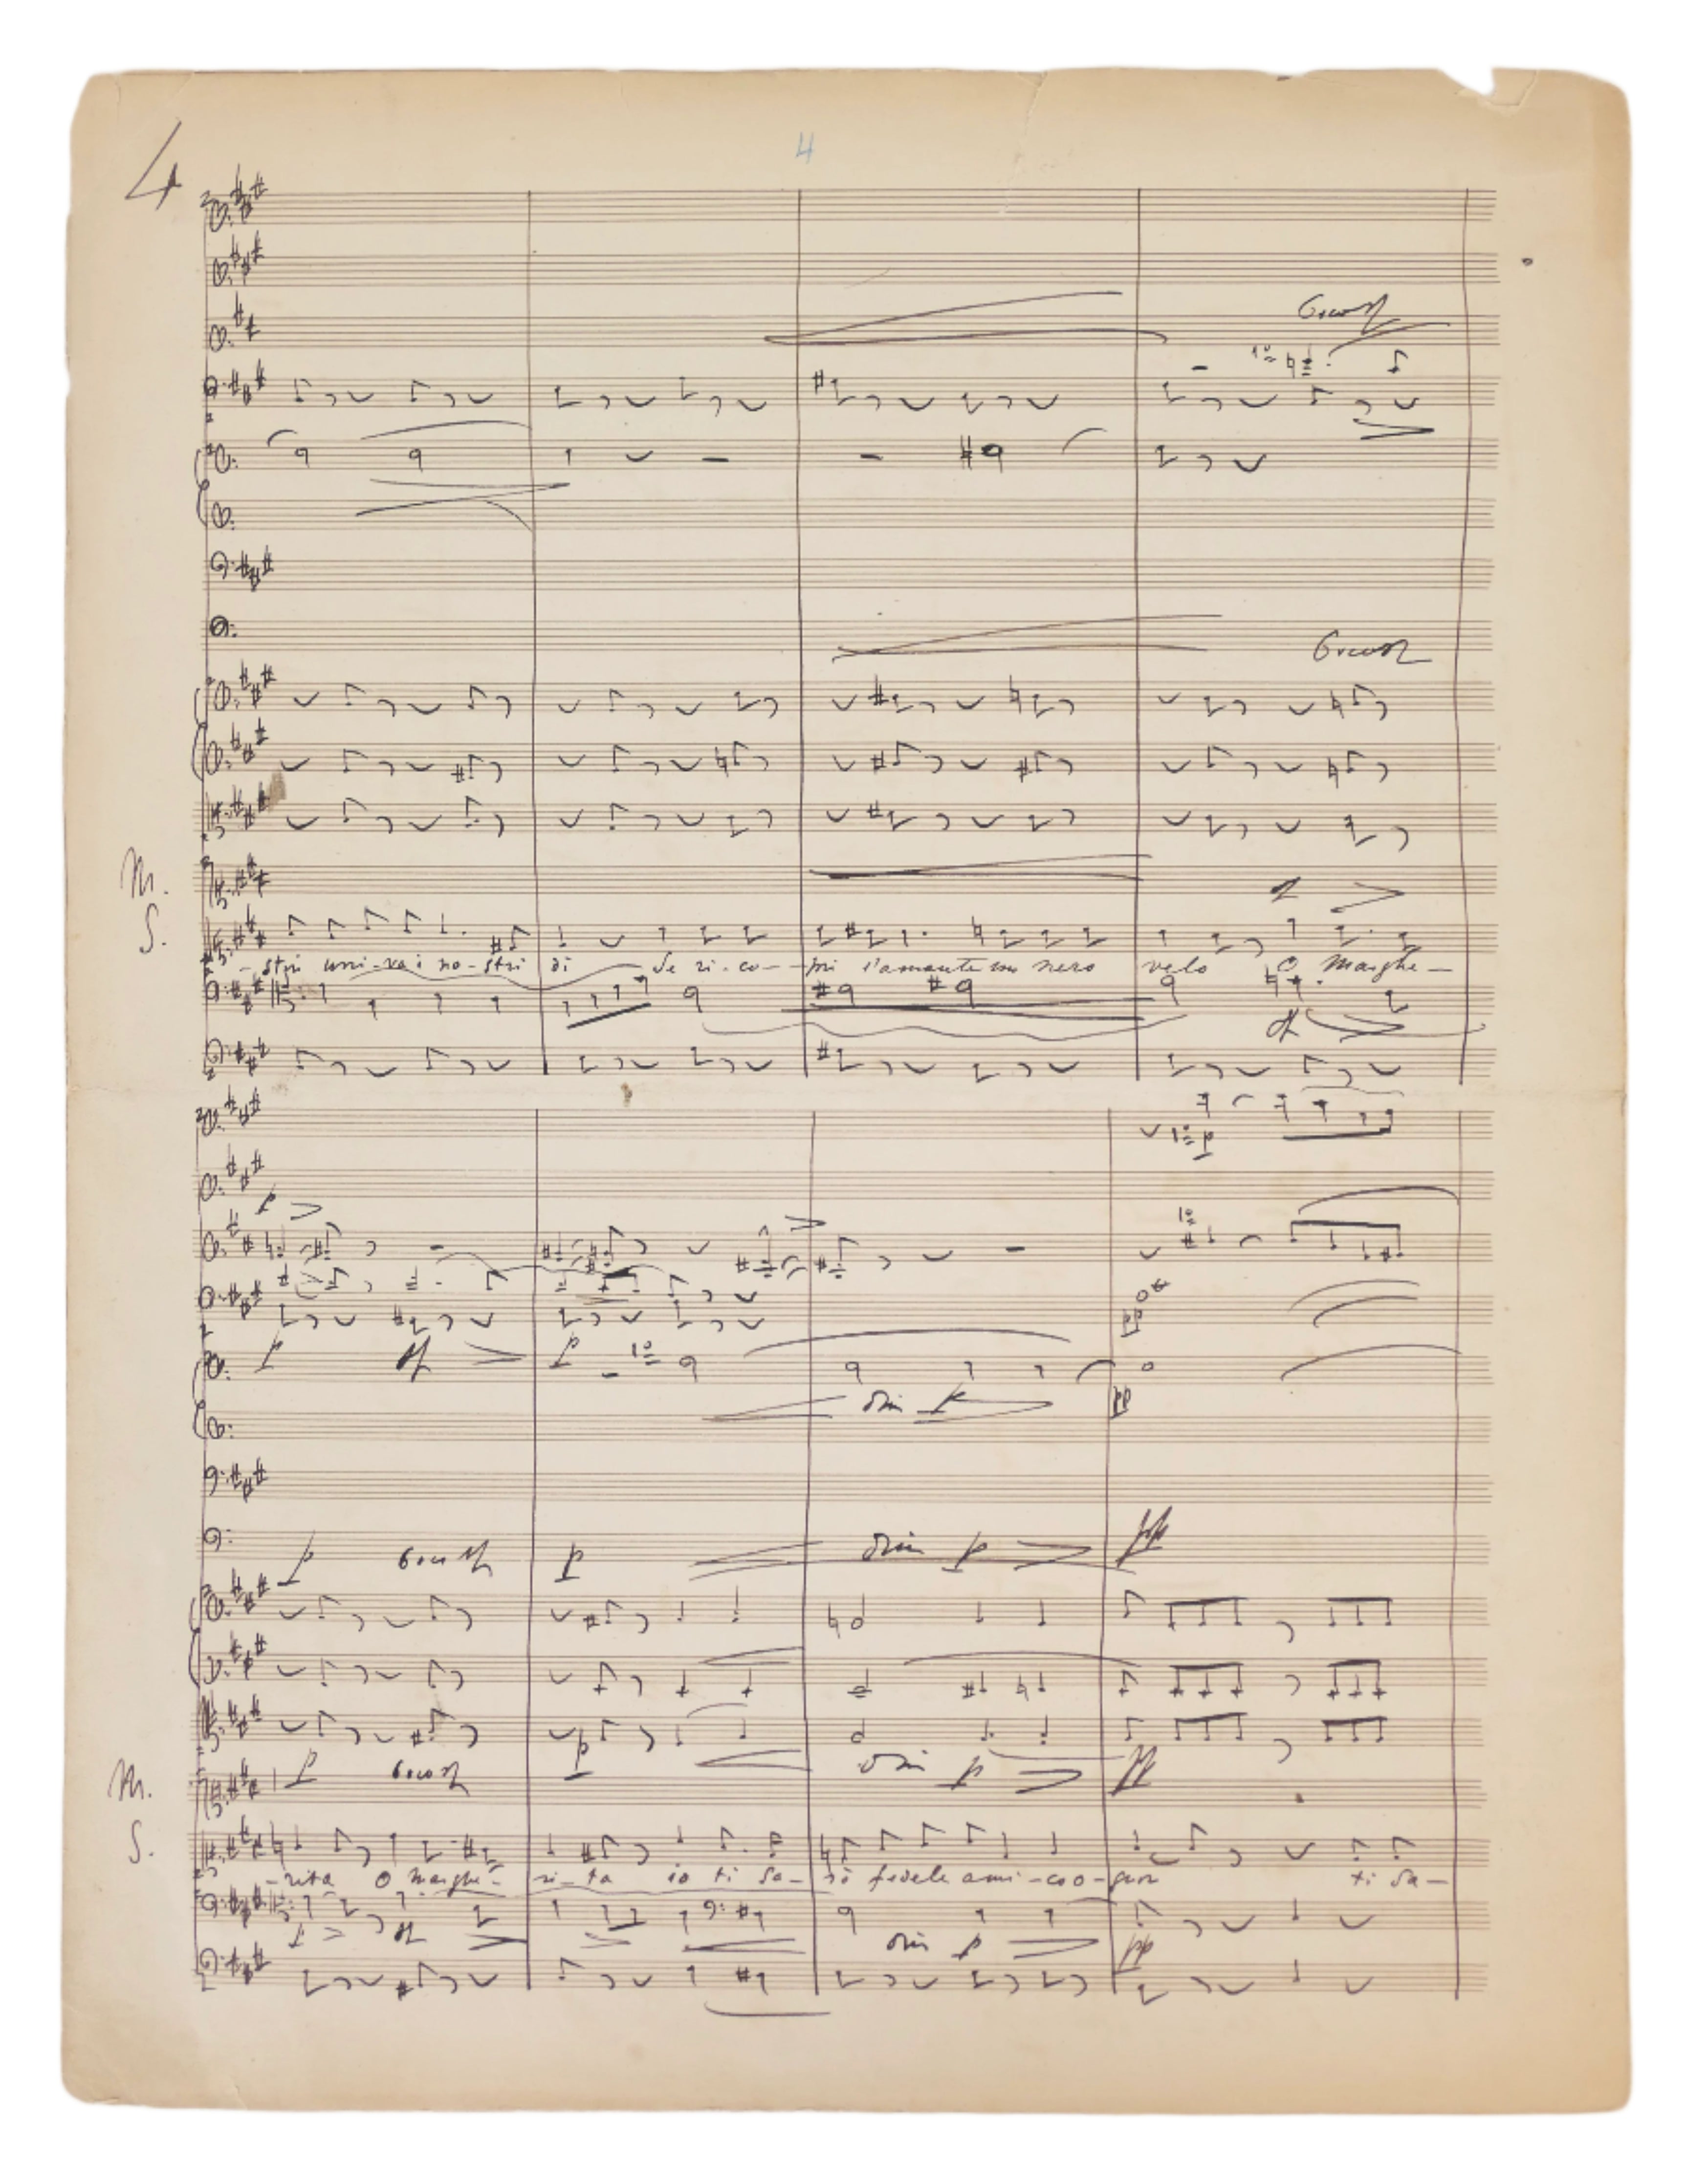 4
4
cresc
1º
cresc
M.
S.
-stri uni-va i no-stri dì Se ri-co-pri l'amante un nero velo O Marghe-
sf
1º p
p
1º
p sf p 1º
dim p
pp
p cresc p dim p pp
p cresc p dim p pp
M.
S.
-rita O Marghe-ri-ta io ti sa-rò fedele ami-co o-gnor ti sa-
p sf dim p pp